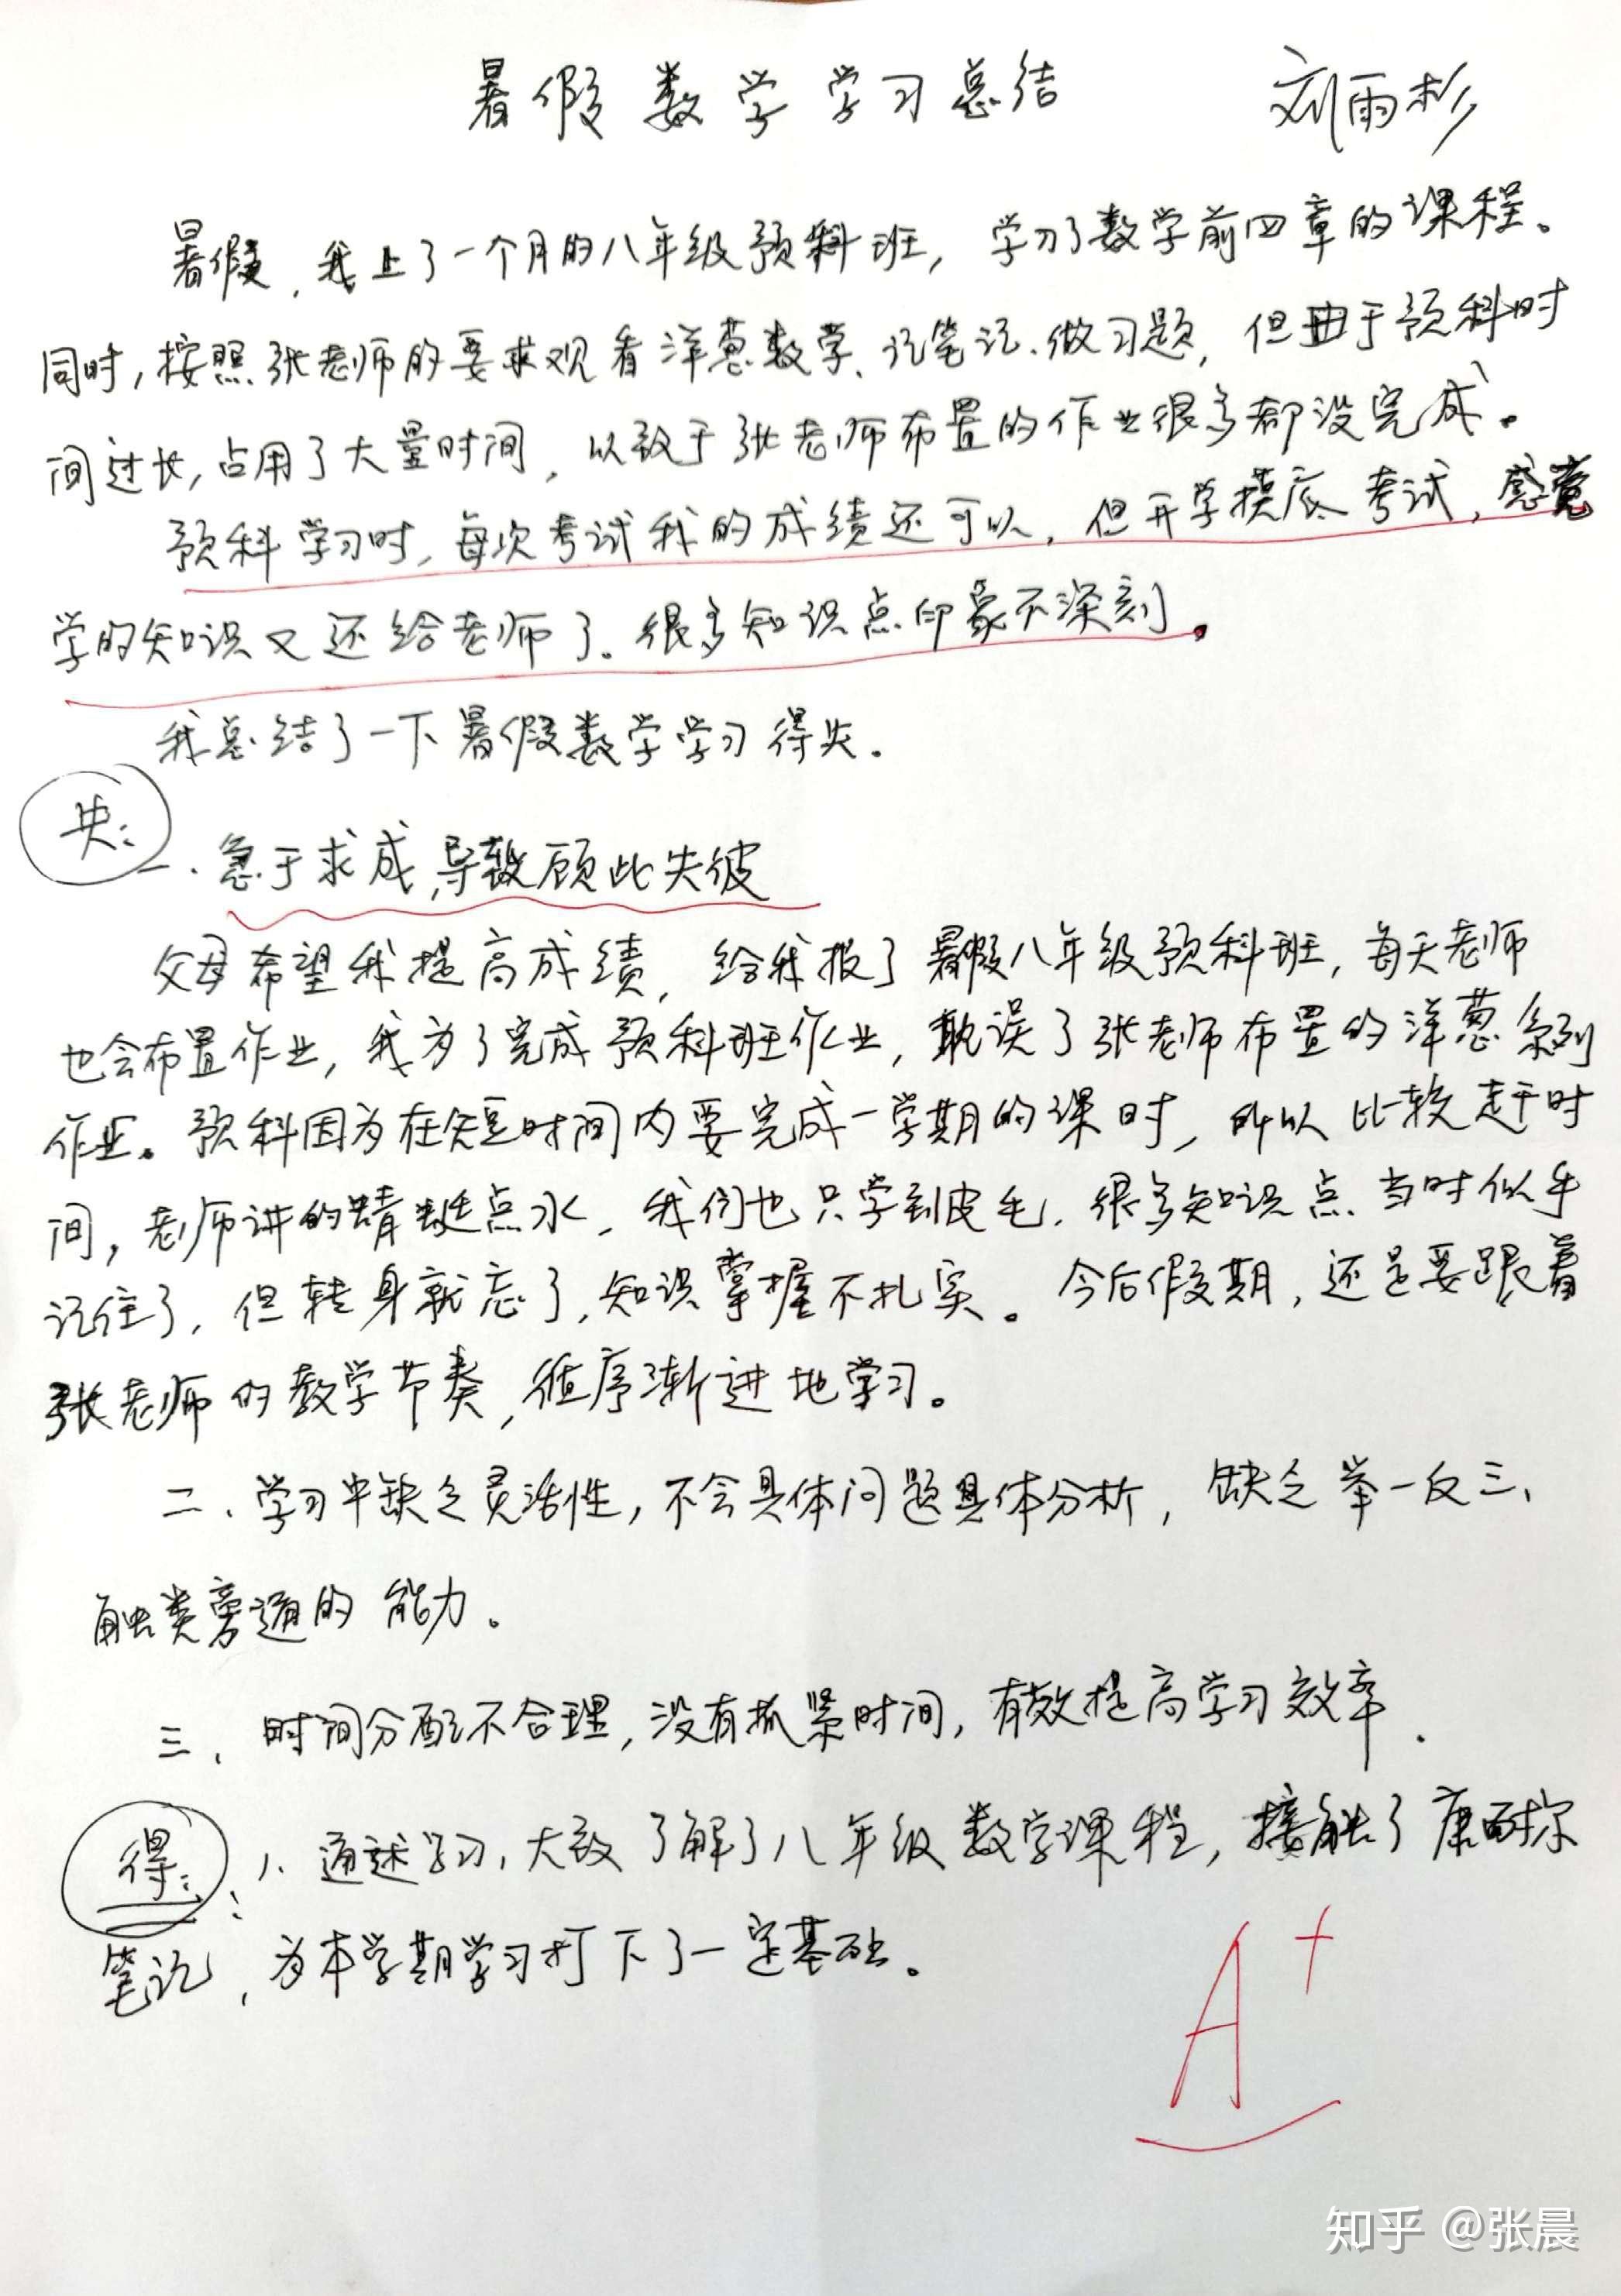 暑假数学学习总结 刘雨杉
暑假,我上了一个月的八年级预科班,学习了数学前四章的课程。
同时,按照张老师的要求观看洋葱数学、记笔记、做习题,但由于预科时
间过长,占用了大量时间,以致于张老师布置的作业很多都没完成。
预科学习时,每次考试我的成绩还可以,但开学摸底考试,感觉
学的知识又还给老师了。很多知识点印象不深刻。
我总结了一下暑假数学学习得失。
失:
一、急于求成,导致顾此失彼
父母希望我提高成绩,给我报了暑假八年级预科班,每天老师
也会布置作业,我为了完成预科班作业,耽误了张老师布置的洋葱系列
作业。预科因为在短时间内要完成一学期的课时,所以比较赶时
间,老师讲的蜻蜓点水,我们也只学到皮毛,很多知识点当时似乎
记住了,但转身就忘了,知识掌握不扎实。今后假期,还是要跟着
张老师的数学节奏,循序渐进地学习。
二、学习中缺乏灵活性,不会具体问题具体分析,缺乏举一反三、
触类旁通的能力。
三、时间分配不合理,没有抓紧时间,有效提高学习效率.
得: 1、通过学习,大致了解了八年级数学课程,接触了康耐尔
笔记,为本学期学习打下了一定基础。
A+
知乎 @张晨